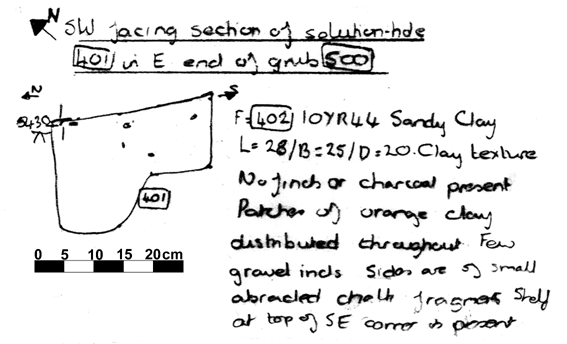 N
SW facing section of solution-hole
401 in E end of grub 500
N
S
401
0 5 10 15 20cm
F= 402 10YR44 Sandy Clay
L= 28/B=25/D=20. Clay texture
No finds or charcoal present
Patches of orange clay
distributed throughout Few
gravel incls Sides are of small
abraded chalk fragments Shelf
at top of SE corner is present